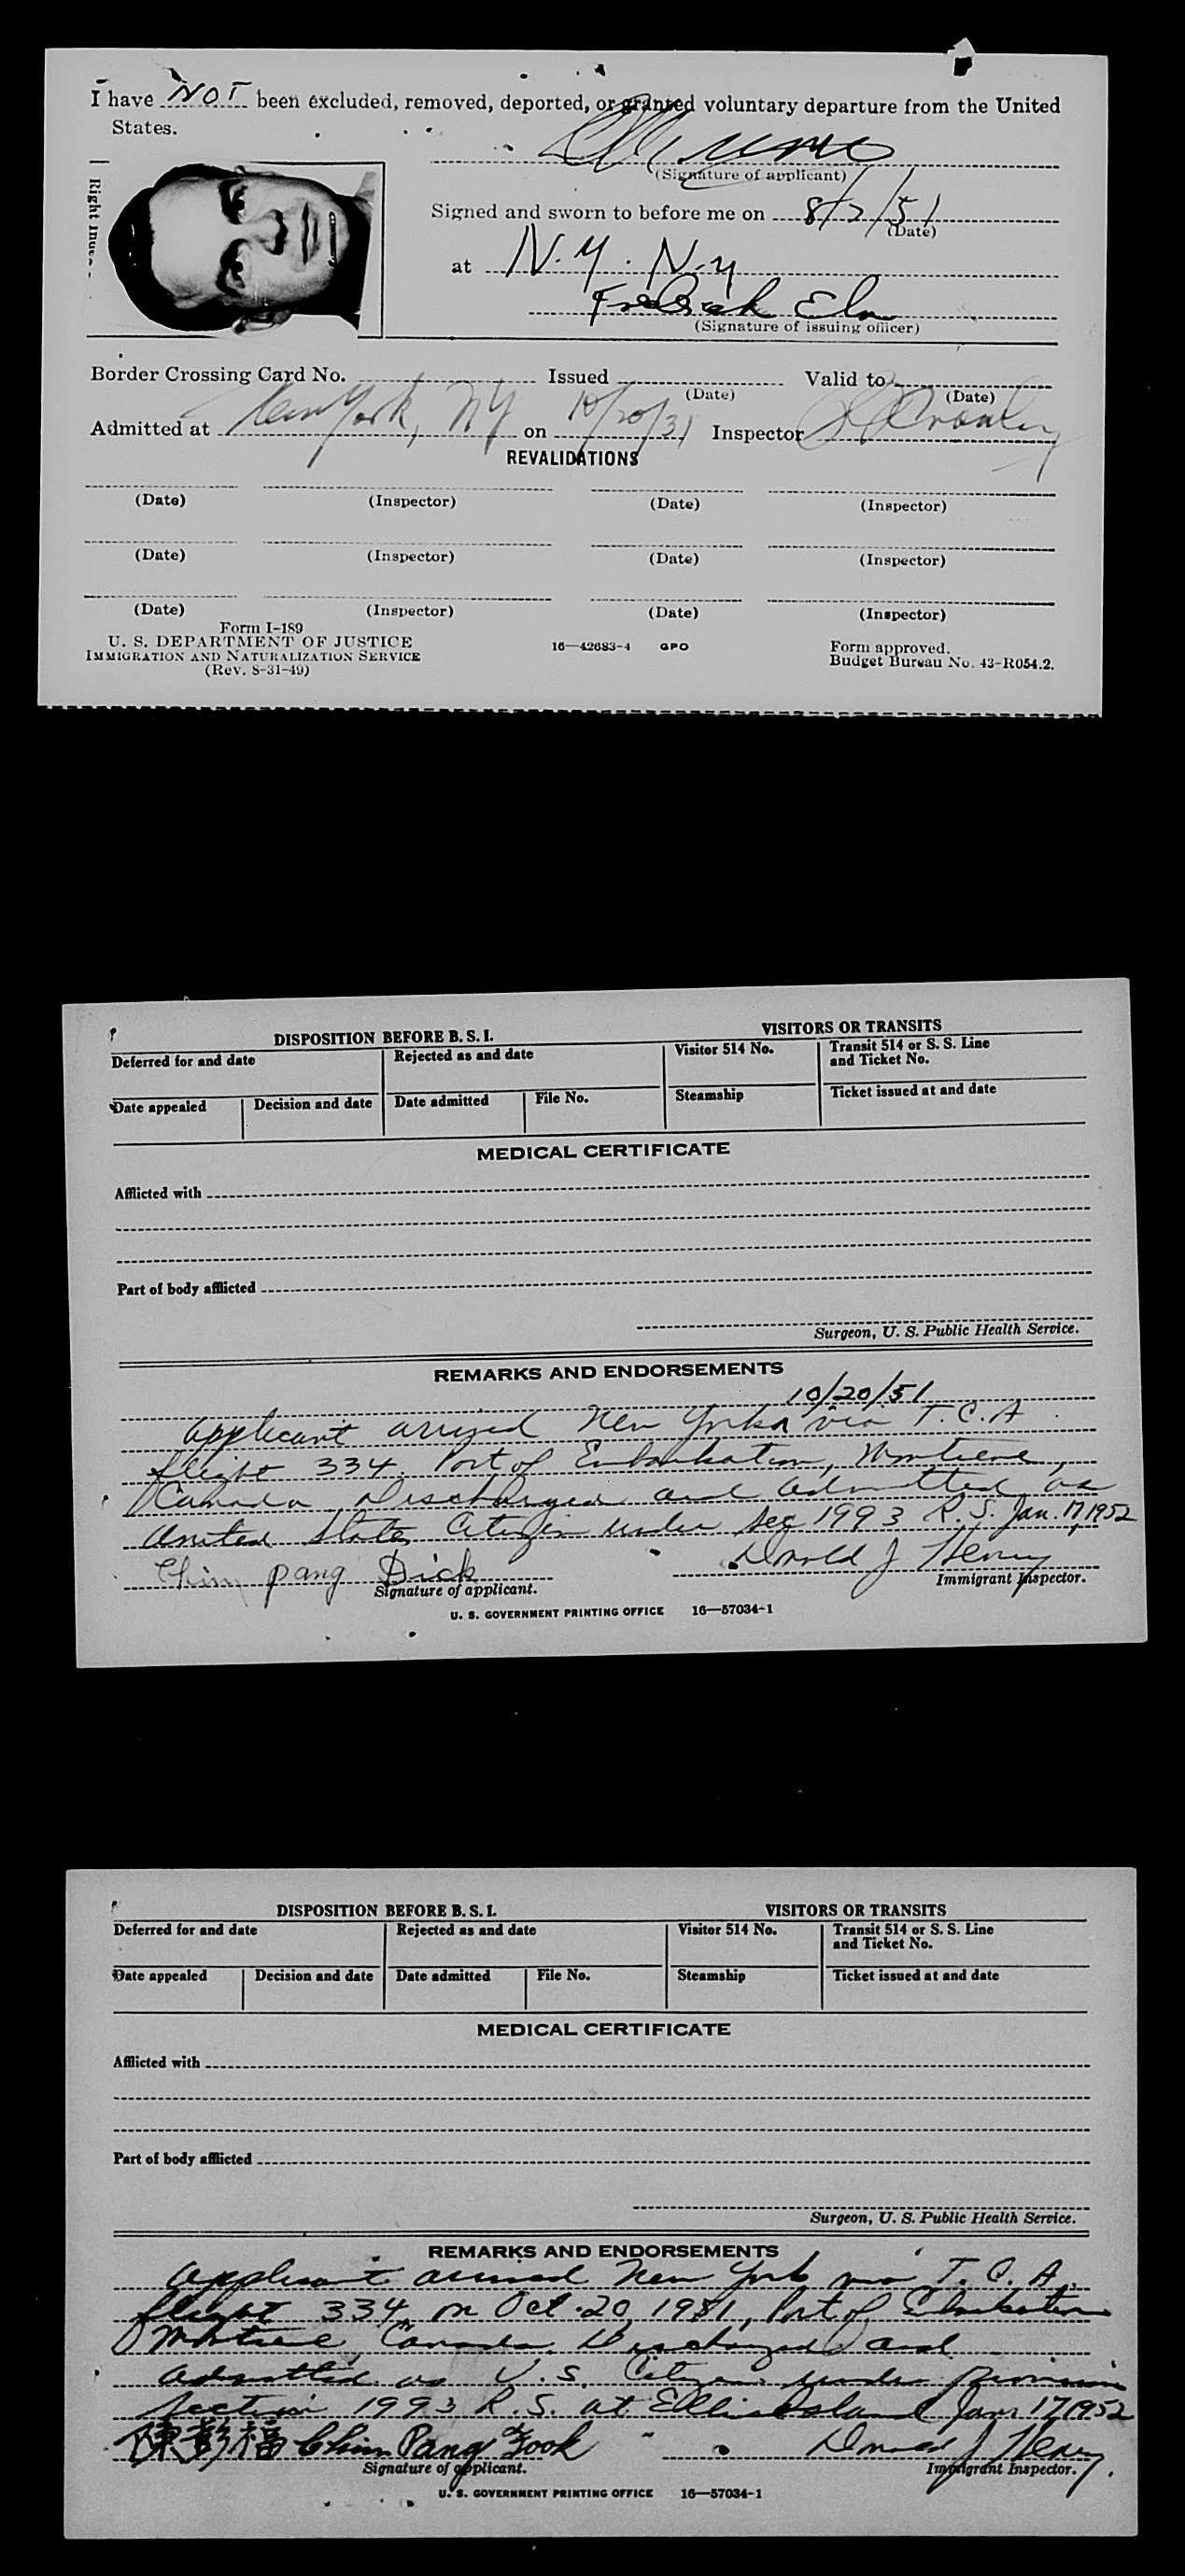 I have NOT been excluded, removed, deported, or granted voluntary departure from the United
States.
(Signature of applicant)
Signed and sworn to before me on 8/7/51
(Date)
at N.Y. N.Y
(Signature of issuing officer)
Border Crossing Card No. Issued Valid to
(Date) (Date)
Admitted at New York, NY on 10/20/51 Inspector
REVALIDATIONS
(Date) (Inspector) (Date) (Inspector)
(Date) (Inspector) (Date) (Inspector)
(Date) (Inspector) (Date) (Inspector)
Form I-189
U. S. DEPARTMENT OF JUSTICE
IMMIGRATION AND NATURALIZATION SERVICE
(Rev. 8-31-49)
16—42683-4 GPO
Form approved.
Budget Bureau No. 43-R054.2.
DISPOSITION BEFORE B. S. I. VISITORS OR TRANSITS
Deferred for and date Rejected as and date Visitor 514 No. Transit 514 or S. S. Line
and Ticket No.
Date appealed Decision and date Date admitted File No. Steamship Ticket issued at and date
MEDICAL CERTIFICATE
Afflicted with
Part of body afflicted
Surgeon, U. S. Public Health Service.
REMARKS AND ENDORSEMENTS
10/20/51
Applicant arrived New York via T.C.A
flight 334. Port of Embarkation, Montreal,
Canada. Discharged and admitted as
United States Citizen under Sec 1993 R.S. Jan. 17, 1952
Chin pang Dick Donald J Henry
Signature of applicant. Immigrant Inspector.
U. S. GOVERNMENT PRINTING OFFICE 16—57034-1
DISPOSITION BEFORE B. S. I. VISITORS OR TRANSITS
Deferred for and date Rejected as and date Visitor 514 No. Transit 514 or S. S. Line
and Ticket No.
Date appealed Decision and date Date admitted File No. Steamship Ticket issued at and date
MEDICAL CERTIFICATE
Afflicted with
Part of body afflicted
Surgeon, U. S. Public Health Service.
REMARKS AND ENDORSEMENTS
Applicant arrived New York via T. C. A.
flight 334, on Oct. 20, 1951, Port of Embarkation
Montreal, Canada. Discharged and
admitted as U.S. Citizen under provision
Section 1993 R.S. at Ellis Island Jan 17, 1952
陳彭福 Chin Pang Fook Donald J Henry
Signature of applicant. Immigrant Inspector.
U. S. GOVERNMENT PRINTING OFFICE 16—57034-1